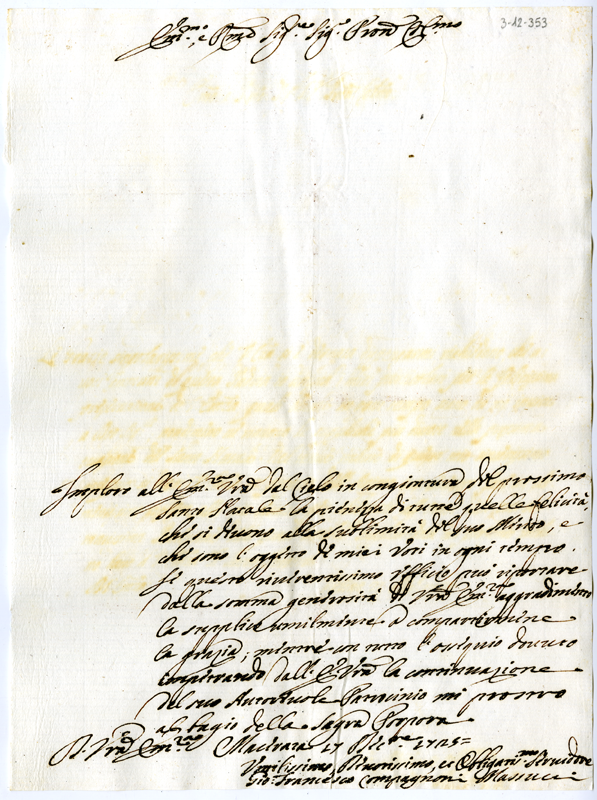 3-12-353
Em.mo, e Rmo Sig.re Sig.r Pron Col.mo
Imploro all' Em.za Vra dal Cielo in congiontura del prossimo
Santo Natale la pienezza di tutte quelle felicità
che si devono alla sublimità del suo Merito, e
che sono l'oggetto de miei Voti in ogni tempo.
Se questo riverentissimo ufficio può riportare
dalla somma generosità di Vra Em.za l'aggradimento
la supplico umilmente a compartirmene
la grazia; mentre con tutto l'ossequio dovuto
implorando dall' E. Vra la continuazione
del suo Autorevole Patrocinio mi prostro
al bagio della Sagra Porpora
D. Vra Em.za Macerata 17 Dicbre 1725=
Umilissimo, Divotissimo, et Obbligatmo Servidore
Gio: Francesco Compagnoni Massucci